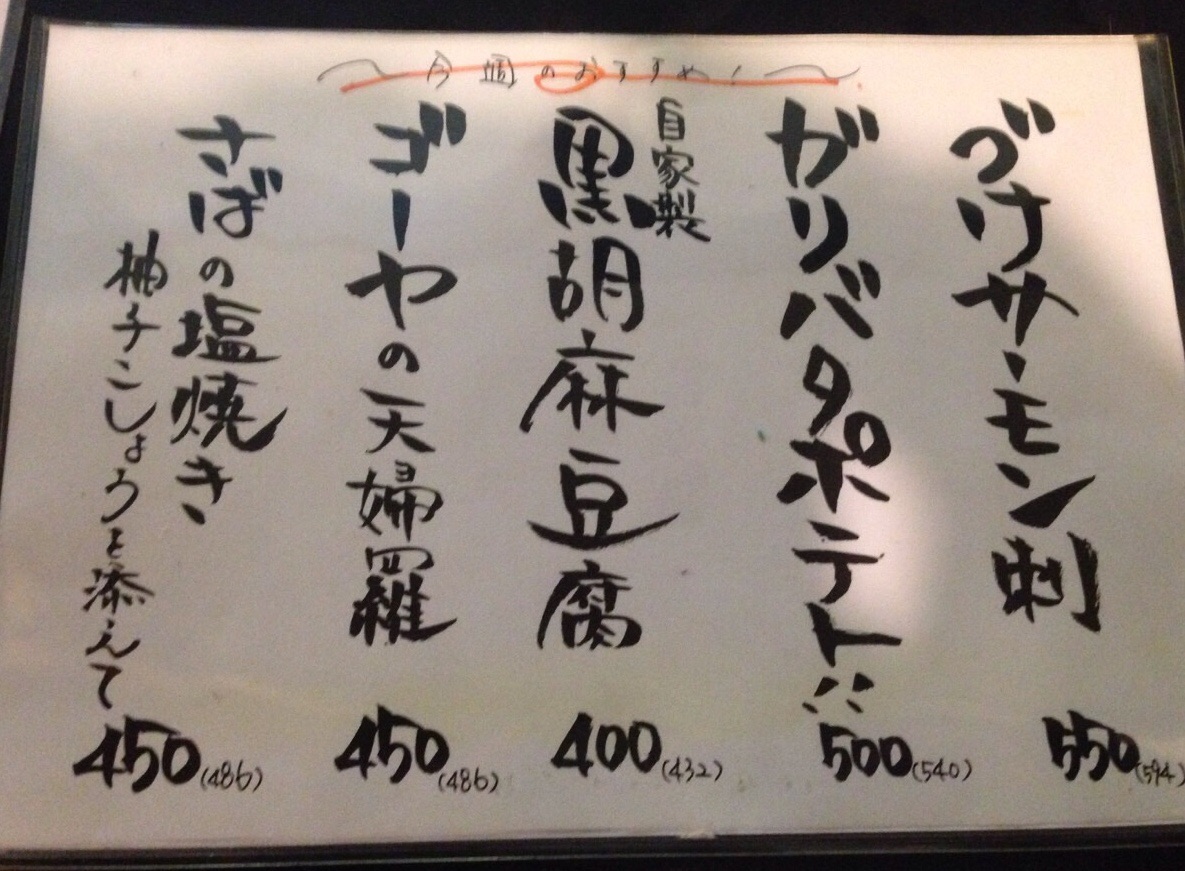 〜今週のおすすめ！〜
づけサーモン刺
550(594)
ガリバタポテト!!
500(540)
自家製
黒胡麻豆腐
400(432)
ゴーヤの天婦羅
450(486)
さばの塩焼き
柚子こしょうを添えて
450(486)